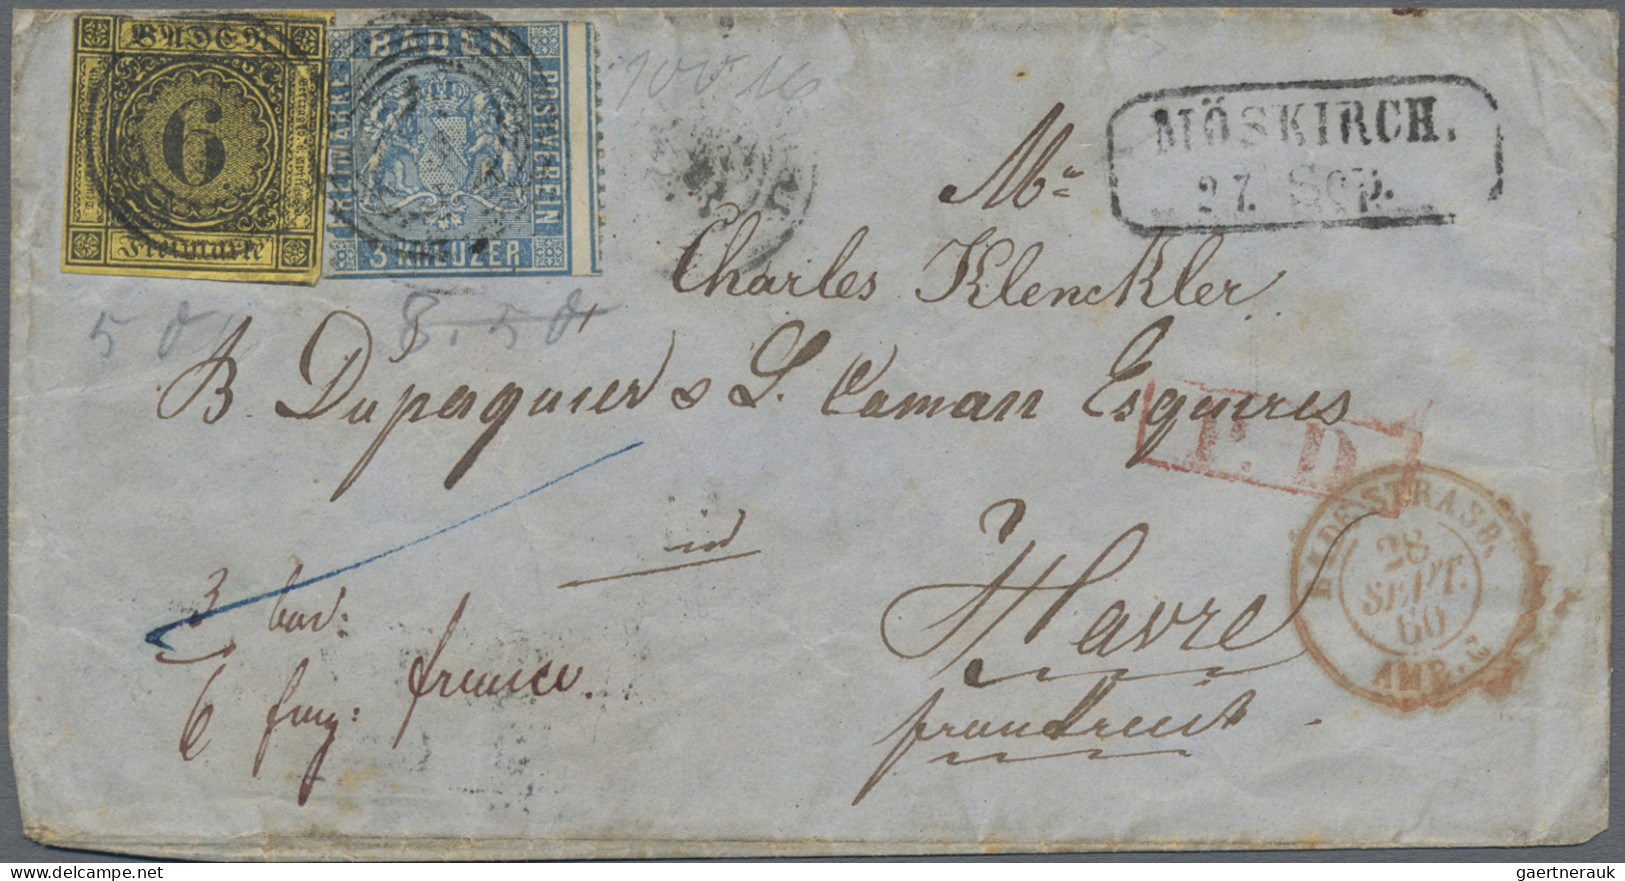 BADEN
6
Freimarke
BADEN
FREIMARKE
POSTVEREIN
3 KREUZER
MÖSKIRCH.
27. Sep.
Mr
Charles Klenckler
5 d
8.50
B. Dupasquier & L. Coman Esquires
P.D.
in
Havre
frankreich
BADE STRASB.
28
SEPT.
60
AMB. C
3 bad:
6 frnz: franco.
gaertnerauk